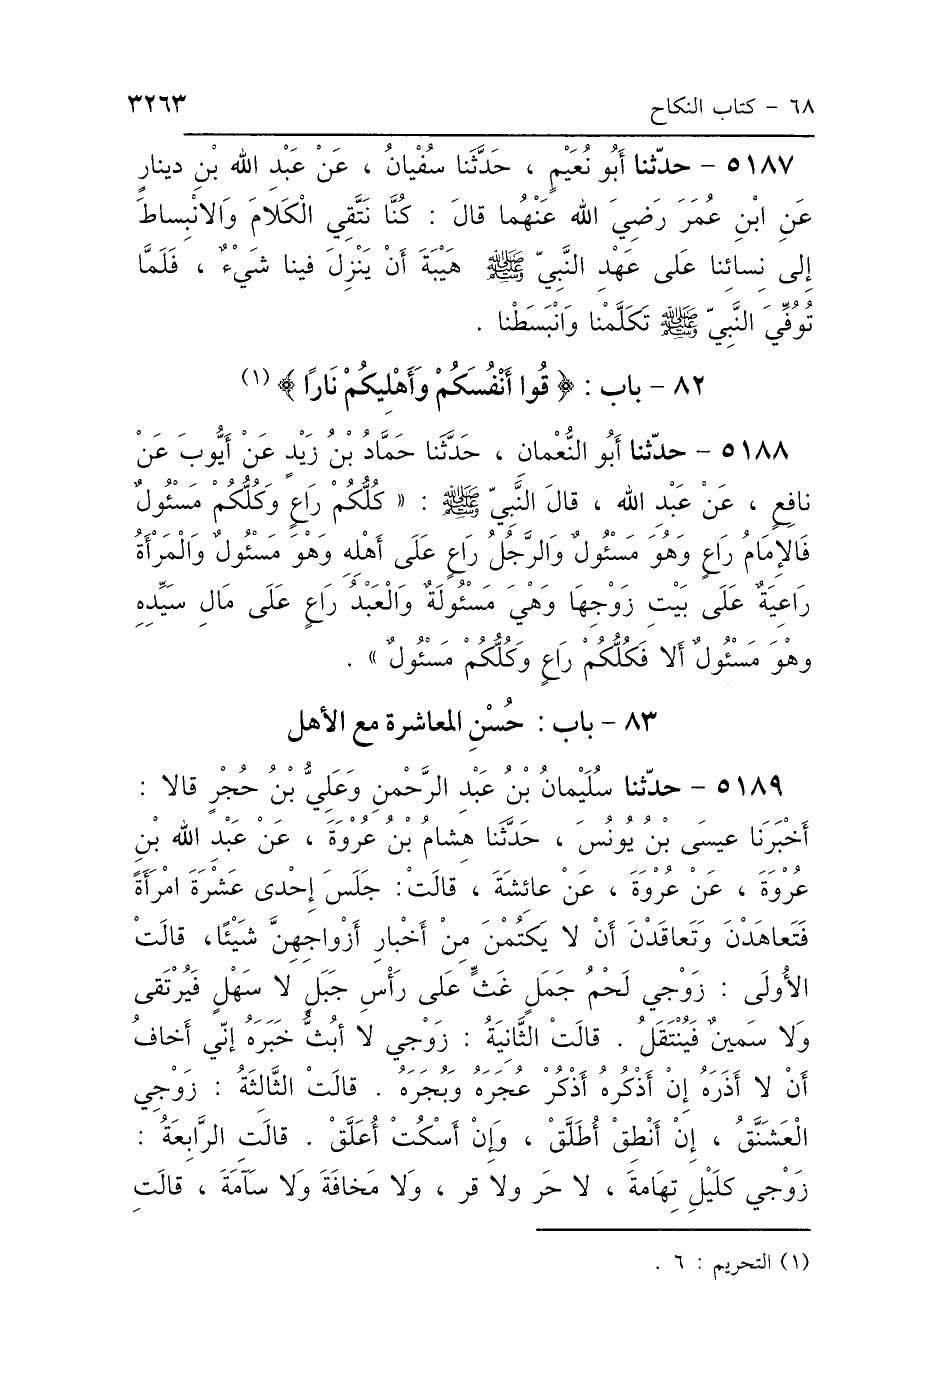 ٦٨ - كتاب النكاح
٣٢٦٣
٥١٨٧ - حدّثنا أَبُو نُعَيْمٍ ، حَدَّثَنا سُفْيانُ ، عَنْ عَبْدِ الله بْنِ دينارٍ
عَنِ ابْنِ عُمَرَ رَضِيَ الله عَنْهُما قالَ : كُنَّا نَتَّقِي الْكَلامَ وَالانْبِساطَ
إلى نِسائِنا عَلَى عَهْدِ النَّبِيّ ﷺ هَيْبَةَ أَنْ يَنْزِلَ فينا شَيْءٌ ، فَلَمَّا
تُوُفِّيَ النَّبِيّ ﷺ تَكَلَّمْنا وَانْبَسَطْنا .
٨٢ - باب : ﴿ قُوا أَنْفُسَكُمْ وَأَهْلِيكُمْ نَارًا ﴾ (١)
٥١٨٨ - حدّثنا أَبُو النُّعْمانِ ، حَدَّثَنا حَمَّادُ بْنُ زَيْدٍ عَنْ أَيُّوبَ عَنْ
نافِعٍ ، عَنْ عَبْدِ الله ، قالَ النَّبِيّ ﷺ : « كُلُّكُمْ رَاعٍ وَكُلُّكُمْ مَسْئُولٌ
فَالإِمَامُ رَاعٍ وَهُوَ مَسْئُولٌ وَالرَّجُلُ رَاعٍ عَلَى أَهْلِهِ وَهْوَ مَسْئُولٌ وَالْمَرْأَةُ
رَاعِيَةٌ عَلَى بَيْتِ زَوْجِهَا وَهْيَ مَسْئُولَةٌ وَالْعَبْدُ رَاعٍ عَلَى مَالِ سَيِّدِهِ
وهْوَ مَسْئُولٌ أَلا فَكُلُّكُمْ رَاعٍ وَكُلُّكُمْ مَسْئُولٌ » .
٨٣ - باب : حُسْنِ المعاشرة مع الأهل
٥١٨٩ - حدّثنا سُلَيْمانُ بْنُ عَبْدِ الرَّحْمنِ وَعَلِيُّ بْنُ حُجْرٍ قالا :
أَخْبَرَنا عيسَى بْنُ يُونُسَ ، حَدَّثَنا هِشامُ بْنُ عُرْوَةَ ، عَنْ عَبْدِ الله بْنِ
عُرْوَةَ ، عَنْ عُرْوَةَ ، عَنْ عائِشَةَ ، قالَتْ: جَلَسَ إِحْدى عَشْرَةَ امْرَأَةً
فَتَعاهَدْنَ وَتَعاقَدْنَ أَنْ لا يَكْتُمْنَ مِنْ أَخْبارِ أَزْواجِهِنَّ شَيْئًا، قالَتْ
الأُولَى : زَوْجي لَحْمُ جَمَلٍ غَثٍّ عَلى رَأْسِ جَبَلٍ لا سَهْلٍ فَيُرْتَقى
وَلا سَمينٌ فَيُنْتَقَلُ . قالَتْ الثَّانِيَةُ : زَوْجي لا أَبُثُّ خَبَرَهُ إِنّي أَخافُ
أَنْ لا أَذَرَهُ إِنْ أَذْكُرهُ أَذْكُرْ عُجَرَهُ وَبُجَرَهُ . قالَتْ الثَّالِثَةُ : زَوْجي
الْعَشَنَّقُ ، إِنْ أَنْطِقْ أُطَلَّقْ ، وَإِنْ أَسْكُتْ أُعَلَّقْ . قالَتِ الرَّابِعَةُ :
زَوْجي كلَيْلِ تِهامةَ ، لا حَر ولا قر ، وَلا مَخافَةَ وَلا سَآمَةَ ، قالَتِ
(١) التحريم : ٦ .